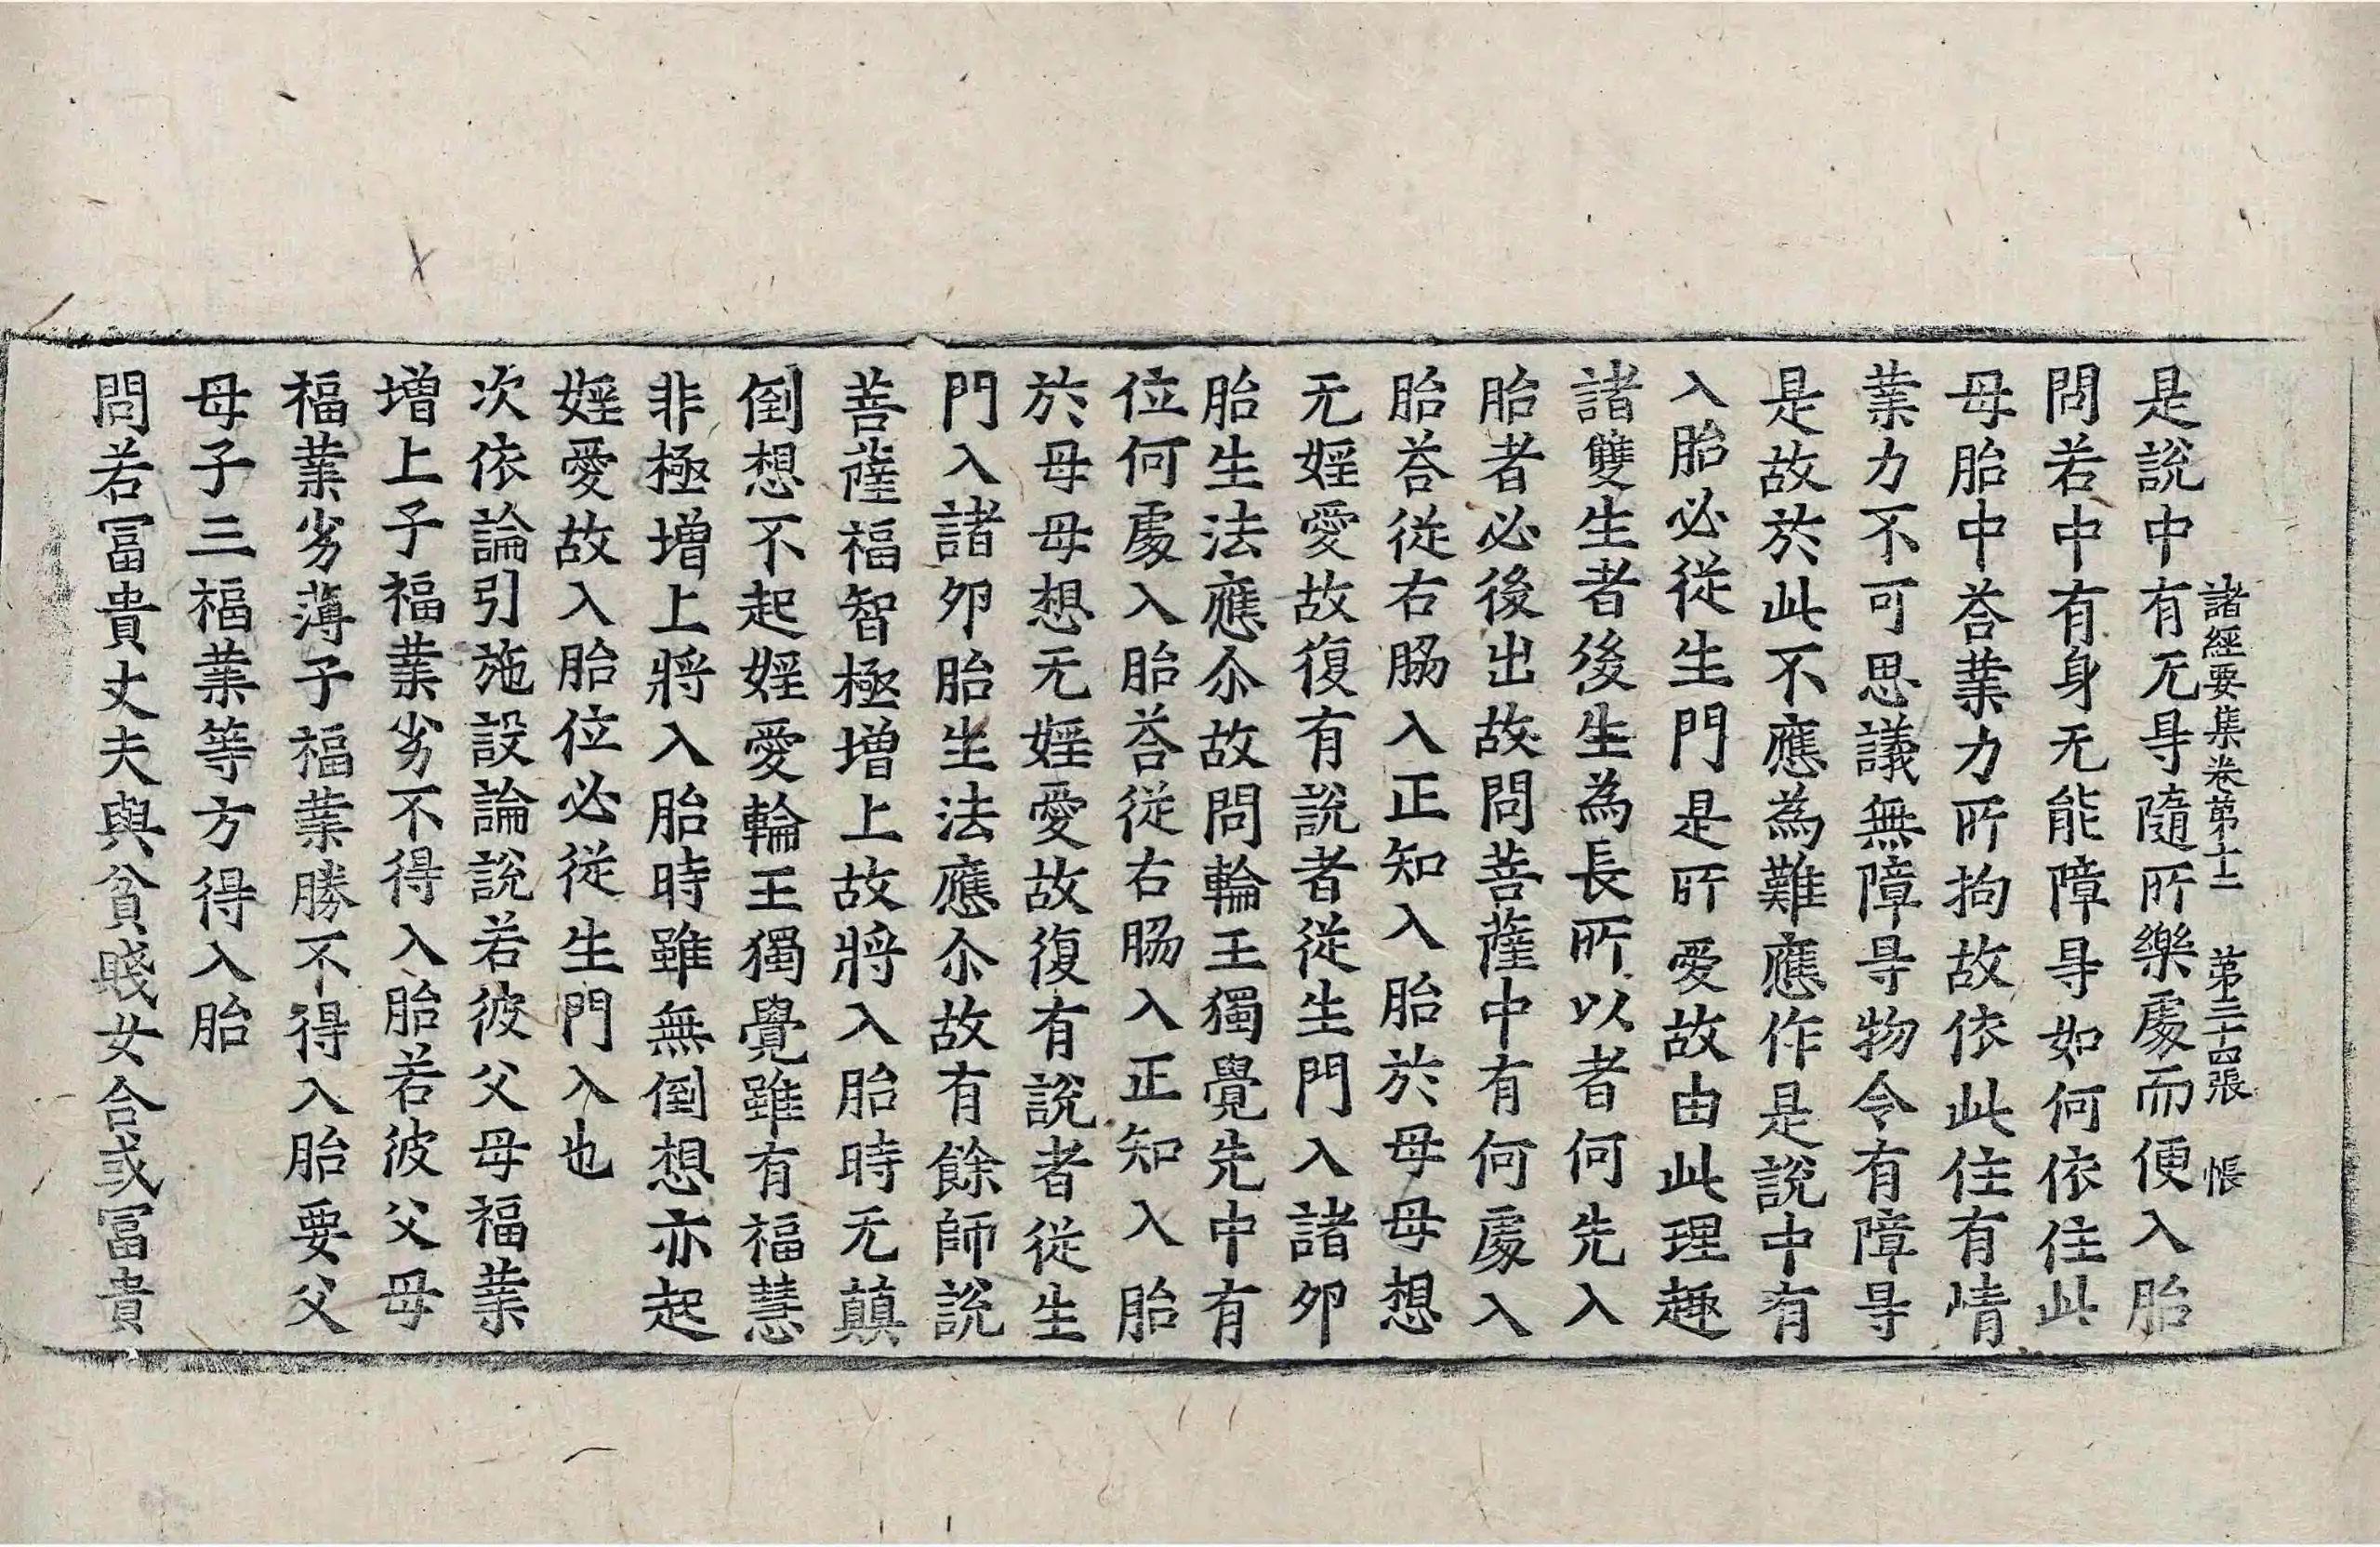 諸經要集卷第十二　第三十四張　帳
是說中有无㝵隨所樂處而便入胎
問若中有身无能障㝵如何依住此
母胎中荅業力所拘故依此住有情
業力不可思議無障㝵物令有障㝵
是故於此不應為難應作是說中有
入胎必從生門是所愛故由此理趣
諸雙生者後生為長所以者何先入
胎者必後出故問菩薩中有何處入
胎荅從右脇入正知入胎於母母想
无婬愛故復有說者從生門入諸卵
胎生法應尒故問輪王獨覺先中有
位何處入胎荅從右脇入正知入胎
於母母想无婬愛故復有說者從生
門入諸卵胎生法應尒故有餘師說
菩薩福智極增上故將入胎時无顛
倒想不起婬愛輪王獨覺雖有福慧
非極增上將入胎時雖無倒想亦起
婬愛故入胎位必從生門入也
次依論引施設論說若彼父母福業
增上子福業劣不得入胎若彼父母
福業劣薄子福業勝不得入胎要父
母子三福業等方得入胎
問若冨貴丈夫與貧賤女合或冨貴